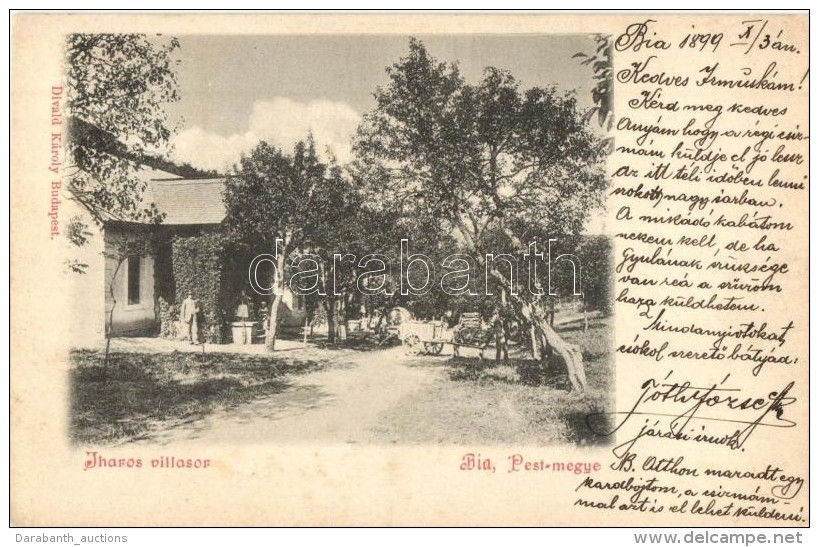 Bia 1899 X/3án.
Kedves Irmuskám!
Kérd meg kedves
Anyám hogy a régi csiz-
mám küldje el jó lesz
az itt téli időben lenni
nagy sárban.
A mikádó kabátom
nekem kell, de ha
Gyulának szüksége
van reá a szűröm
haza küldhetem.
Mindanyiotokat
csókol szerető bátyád:
Tóth József
járási irnok.
N.B. Otthon maradt egy
kardbojtom, a csizmám-
mal azt is el lehet küldeni.
Divald Károly Budapest.
darabanth
Iharos villasor
Bia, Pest-megye
Darabanth_auctions
http://www.delcampe.net